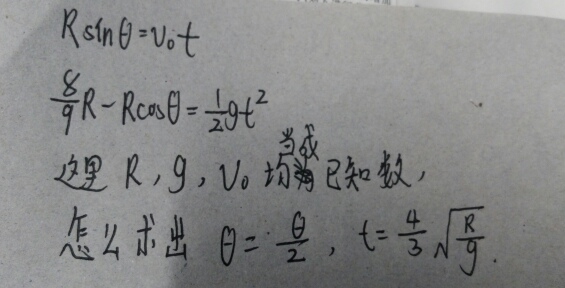 Rsinθ=v₀t
8/9R-Rcosθ=1/2gt²
这里 R,g,v₀均当成已知数,
怎么求出 θ=θ/2, t=4/3√(R/g).